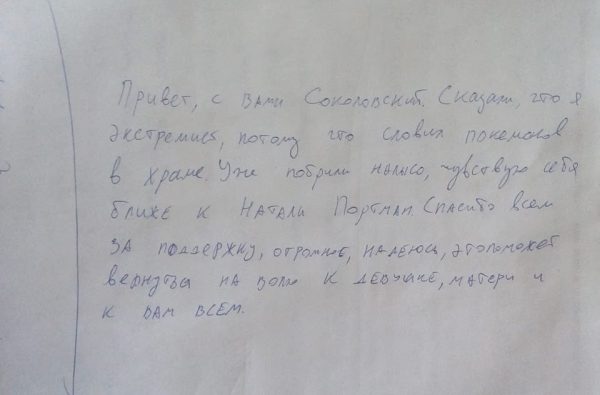 Привет, с вами Соколовский. Сказали, что я
экстремист, потому что словил покемонов
в храме. Уже побрили налысо, чувствую себя
ближе к Натали Портман. Спасибо всем
за поддержку, огромное, надеюсь, это поможет
вернуться на волю к девушке, матери и
к вам всем.